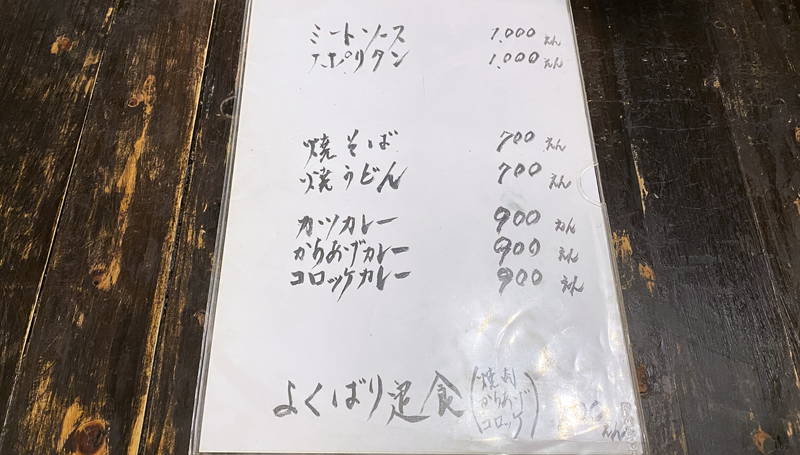 ミートソース 1,000 えん
ナポリタン 1,000 えん
焼そば 700 えん
焼うどん 700 えん
カツカレー 900 えん
からあげカレー 900 えん
コロッケカレー 900 えん
よくばり定食
からあげ
コロッケ
えん